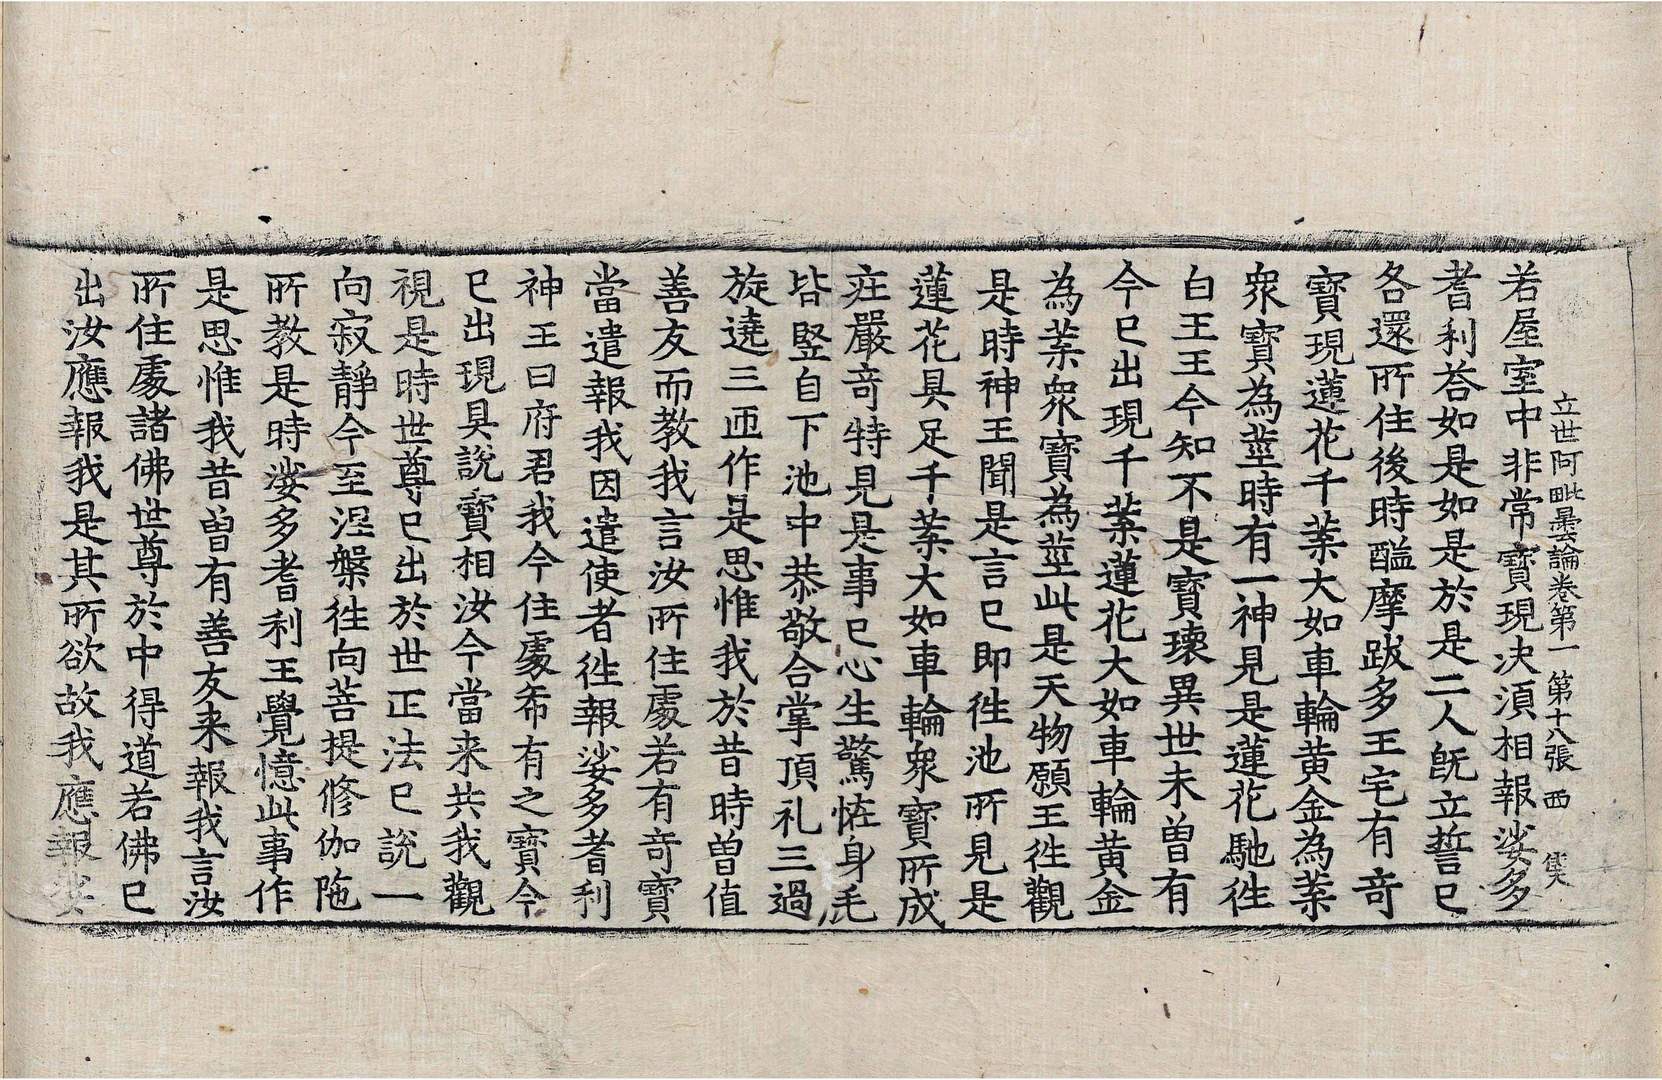 立世阿毗曇論卷第一 第十八張 西
若屋室中非常寶現決湏相報娑多
耆利荅如是如是於是二人旣立誓已
各還所住後時醯摩跋多王宅有竒
寶現蓮花千葉大如車輪黄金為葉
衆寶為莖時有一神見是蓮花馳徃
白王王今知不是寶瓌異世未曽有
今已出現千葉蓮花大如車輪黄金
為葉衆寶為莖此是天物願王徃觀
是時神王聞是言已即徃池所見是
蓮花具足千葉大如車輪衆寶所成
莊嚴竒特見是事已心生驚恠身毛
皆竪自下池中恭敬合掌頂礼三過
旋遶三匝作是思惟我於昔時曽值
善友而教我言汝所住處若有竒寶
當遣報我因遣使者徃報娑多耆利
神王曰府君我今住處希有之寶今
已出現具說寶相汝今當来共我觀
視是時世尊已出於世正法已說一
向寂靜令至涅槃徃向菩提修伽陁
所教是時娑多耆利王覺憶此事作
是思惟我昔曽有善友来報我言汝
所住處諸佛世尊於中得道若佛已
出汝應報我是其所欲故我應報